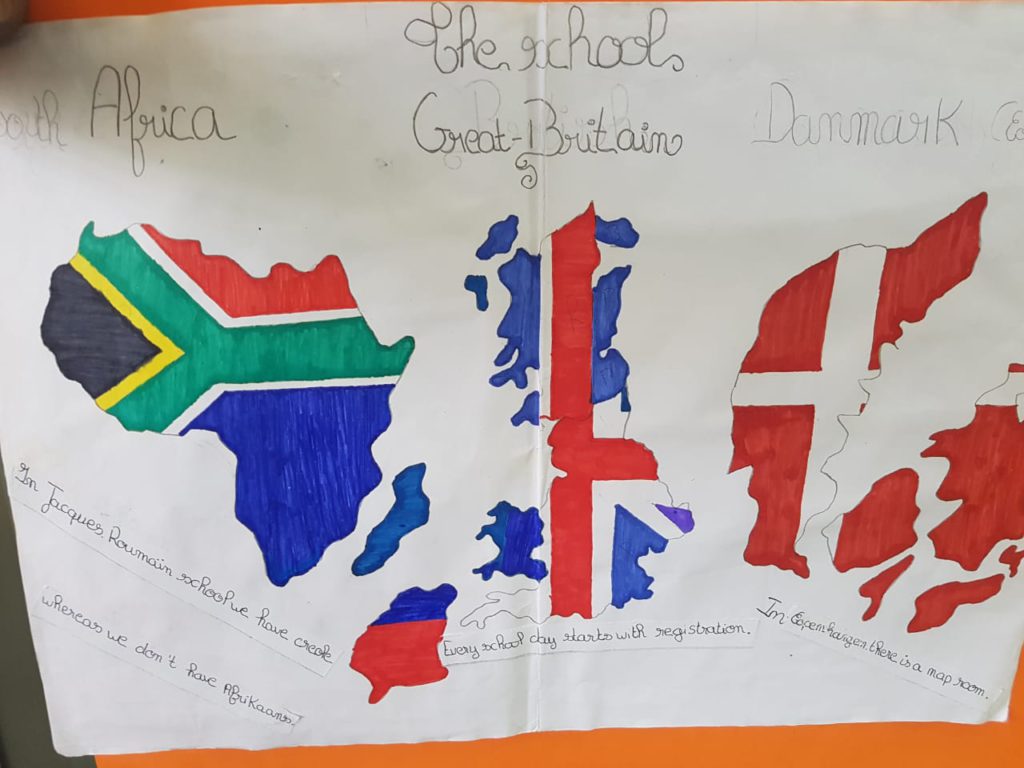 The school
South Africa
Great-Britain
Danmark
In Jacques Roumain school we have creole
whereas we don't have Afrikaans.
Every school day starts with registration.
In Copenhaigen there is a map room.